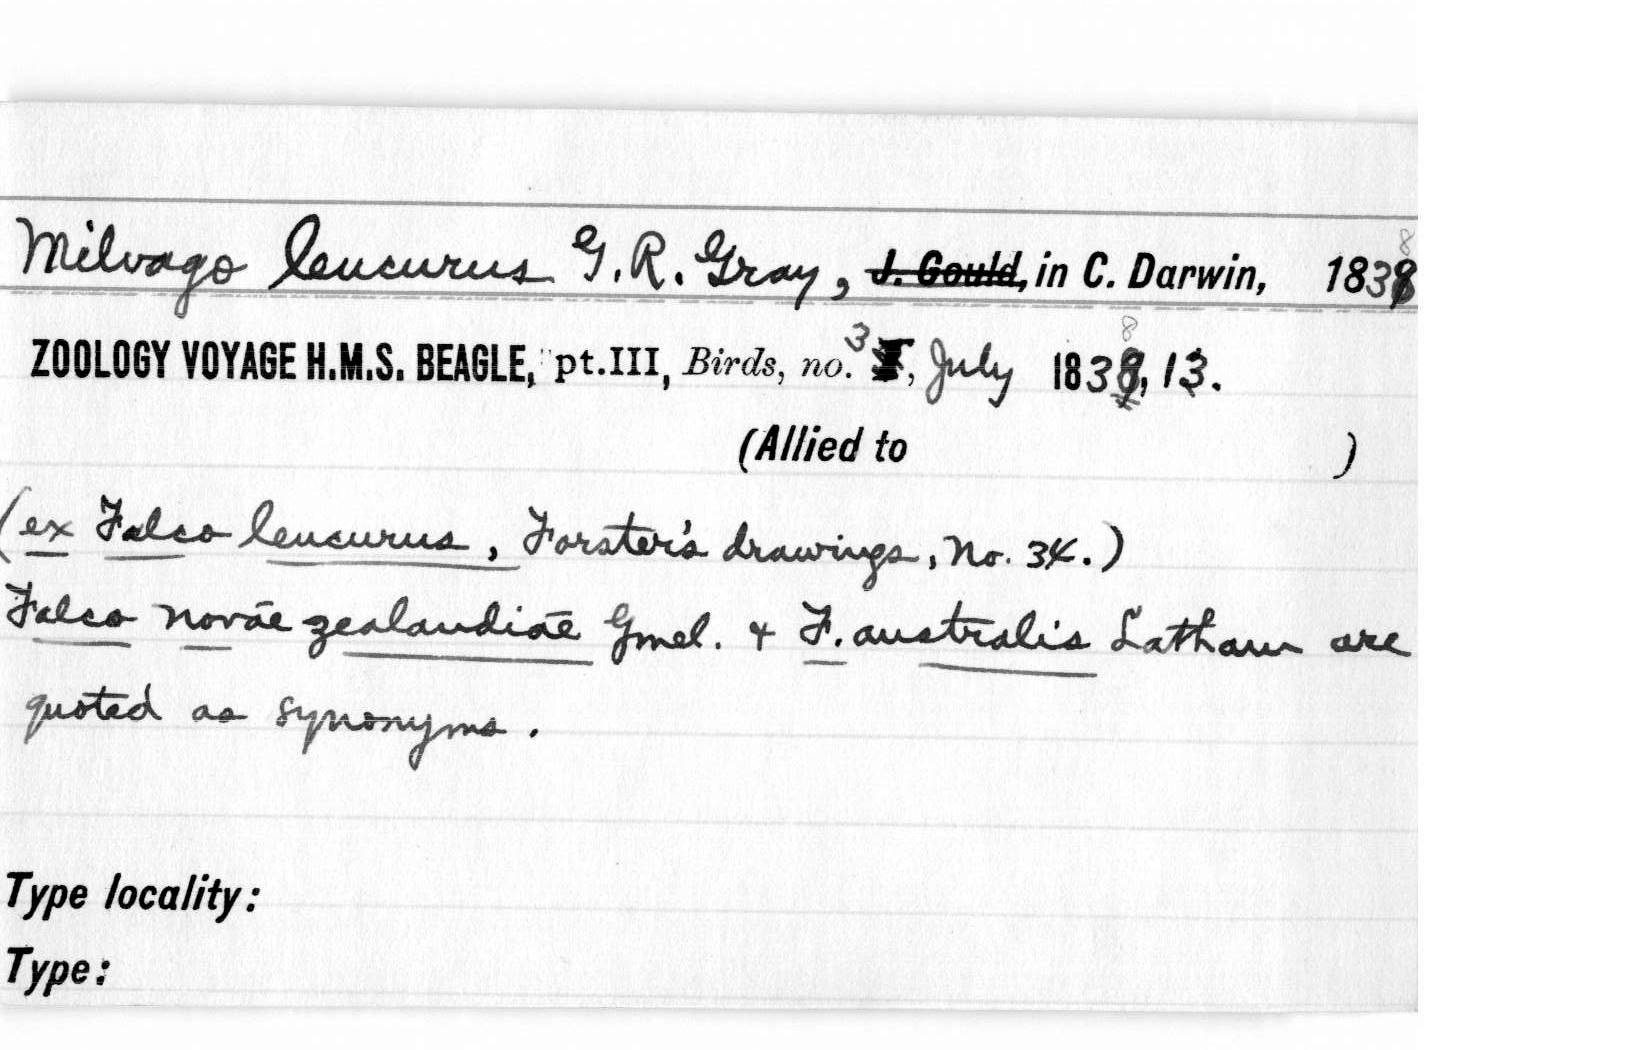 Milvago leucurus G. R. Gray, J. Gould, in C. Darwin, 1838
ZOOLOGY VOYAGE H.M.S. BEAGLE, pt.III, Birds, no. 3, July 1838, 13.
(Allied to )
(ex Falco leucurus, Forster's drawings, No. 34.)
Falco novae zealandiae Gmel. & F. australis Latham are
quoted as synonyms.
Type locality:
Type: